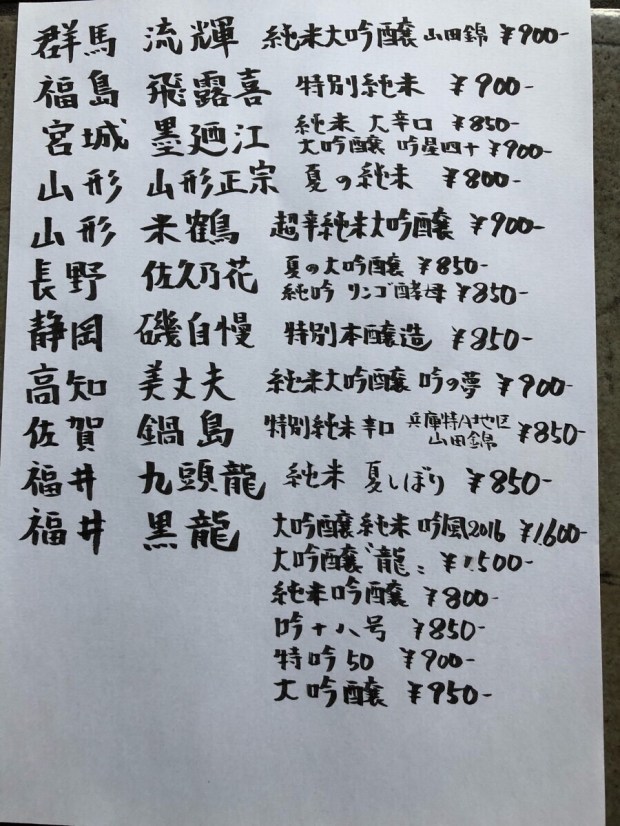 群馬 流輝 純米大吟醸 山田錦 ¥900-
福島 飛露喜 特別純米 ¥900-
宮城 墨廼江 純米 大辛口 ¥850-
大吟醸 吟星四十 ¥900-
山形 山形正宗 夏の純米 ¥800-
山形 米鶴 超辛純米大吟醸 ¥900-
長野 佐久乃花 夏の大吟醸 ¥850-
純吟 リンゴ酵母 ¥850-
静岡 磯自慢 特別本醸造 ¥850-
高知 美丈夫 純米大吟醸 吟の夢 ¥900-
佐賀 鍋島 特別純米辛口 兵庫特A地区 山田錦 ¥850-
福井 九頭龍 純米 夏しぼり ¥850-
福井 黒龍 大吟醸純米 吟風2016 ¥1,600-
大吟醸"龍" ¥1,500-
純米吟醸 ¥800-
吟十八号 ¥850-
特吟50 ¥900-
大吟醸 ¥950-